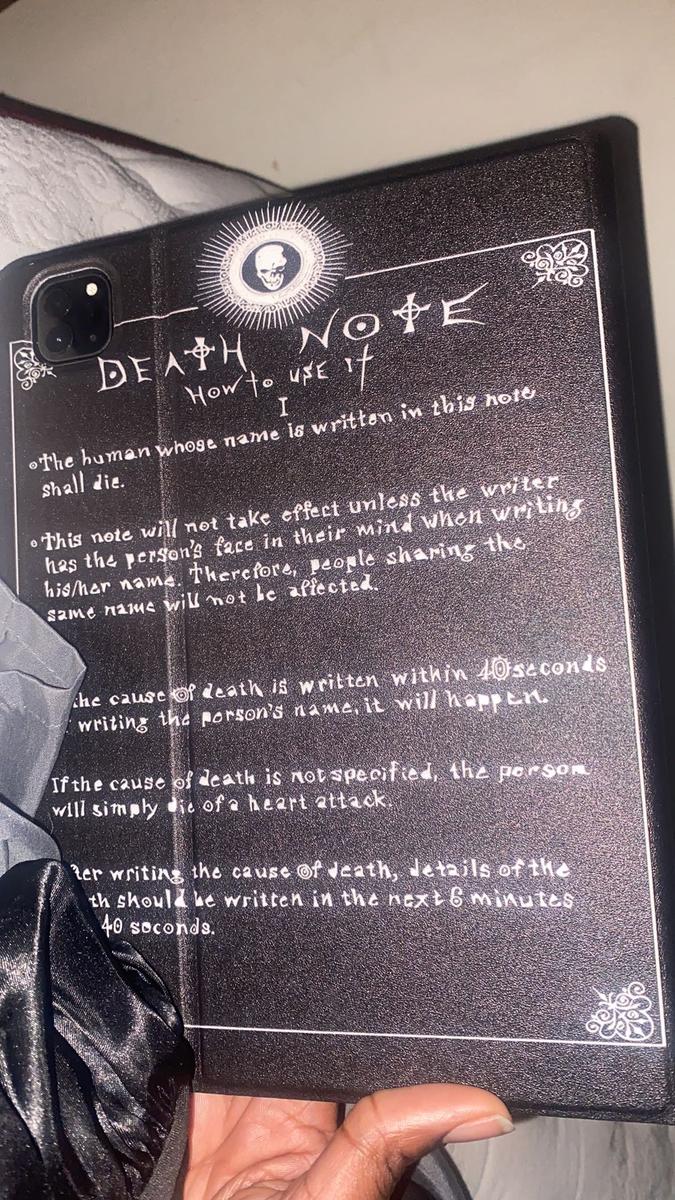 DEATH NOTE
How to use it
I
The human whose name is written in this note
shall die.
This note will not take effect unless the writer
has the person's face in their mind when writing
his/her name. Therefore, people sharing the
same name will not be affected.
the cause of death is written within 40 seconds
writing the person's name, it will happen.
If the cause of death is not specified, the person
will simply die of a heart attack.
writing the cause of death, details of the
should be written in the next 6 minutes
40 seconds.